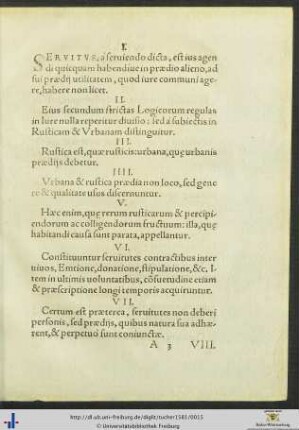 I.
SERVITVS, à seruiendo dicta, est ius agen
di quicquam habendiue in prædio alieno, ad
sui prædij vtilitatem, quod iure communi age
re, habere non licet.
II.
Eius secundum strictas Logicorum regulas
in Iure nulla reperitur diuisio: sed à subiectis in
Rusticam & Vrbanam distinguitur.
III.
Rustica est, quæ rusticis: urbana, quę urbanis
prædijs debetur.
IIII.
Vrbana & rustica prædia non loco, sed gene
re & qualitate usus discernuntur.
V.
Hæc enim, quę rerum rusticarum & percipi-
endorum ac colligendorum fructuum: illa, quę
habitandi causa sunt parata, appellantur.
VI.
Constituuntur seruitutes contractibus inter
uiuos, Emtione, donatione, stipulatione, &c. I-
tem in ultimis uoluntatibus, cōsuetudine etiam
& præscriptione longi temporis acquiruntur.
VII.
Certum est præterea, seruitutes non deberi
personis, sed prædijs, quibus natura sua adhæ-
rent, & perpetuò sunt coniunctæ.
A 3 VIII.
http://dl.ub.uni-freiburg.de/diglit/tucher1581/0015
© Universitätsbibliothek Freiburg